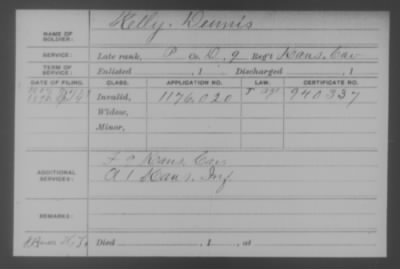 NAME OF SOLDIER: Kelly, Dennis
SERVICE: Late rank, P Co. D, 9 Reg't Kans. Cav
TERM OF SERVICE: Enlisted , 1 Discharged , 1
DATE OF FILING. CLASS. APPLICATION NO. LAW. CERTIFICATE NO.
Invalid, 1176,020 940337
Widow,
Minor,
ADDITIONAL SERVICES: F 9 Kans. Cav
A 1 Kans. Inf
REMARKS:
Died , 1 , at